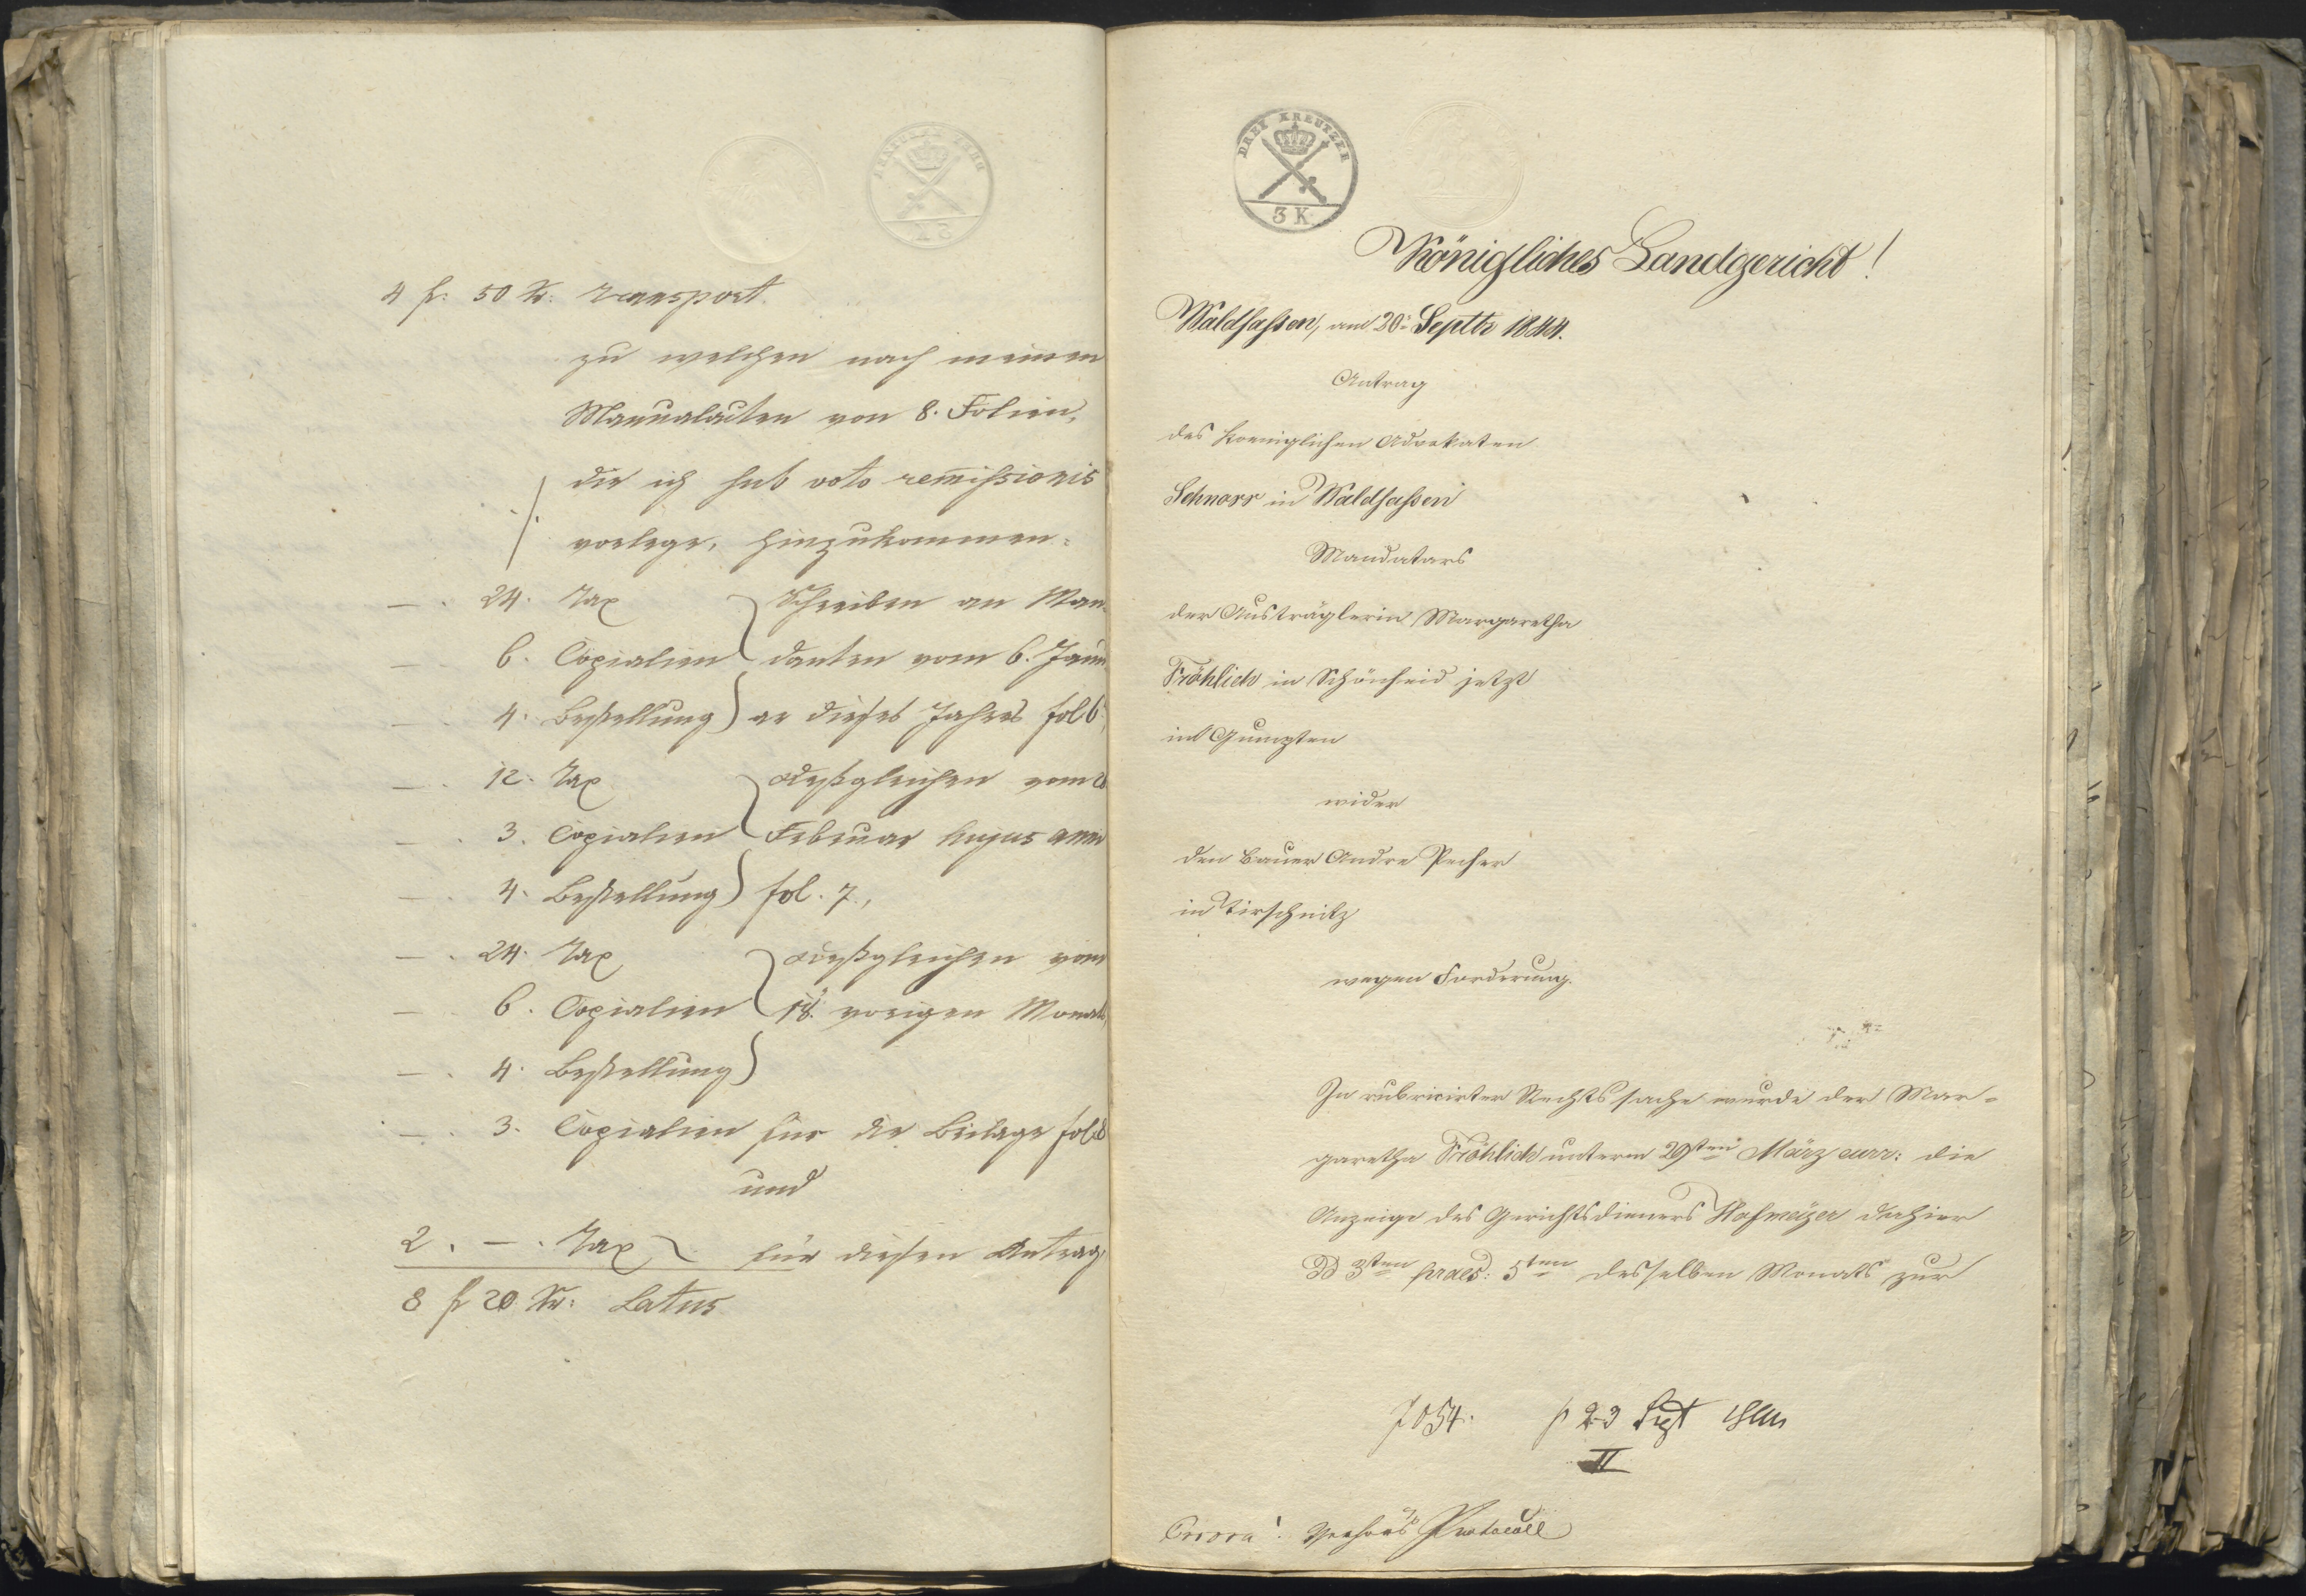 4 f: 50 Kr: Transport
zu welchen nach meinen
Manualacten von 8. Folien,
die ich sub voto remissionis
./. vorlege, hinzukommen:
— . 24. Tax Schreiben an Man-
— 6. Copialien danten vom 6. Janu
— 4. Bestellung ar dieses Jahres fol 6,
— . 12. Tax deßgleichen vom
— . 3. Copialien Februar hujus anni
— 4. Bestellung fol. 7.,
— . 24. Tax deßgleichen vom
— 6. Copialien 18. vorigen Monats,
— . 4. Bestellung
— . 3. Copialien für die Beilage fol 8
und
2. — . Tax für diesen Antrag,
8 f 20 Kr: Latus
DREY KREUTZER
3 K.
Königliches Landgericht!
Waldsassen, am 20: Septbr 1844.
Antrag
des koeniglichen Advokaten
Schnorr in Waldsassen
Mandatars
der Austräglerin Margaretha
Fröhlich in Schönheid jetzt
in Gumpten
wider
den Bauer Andre Pecher
in Tirschnitz
wegen Forderung.
In rubricirter Rechtssache wurde der Mar-
garetha Fröhlich unterm 29sten März curr: die
Anzeige des Gerichtsdieners Hofmeyer dahier
dd 3ten praes: 5ten desselben Monats zur
7054. p 23 Sept 1844
II
Protocoll